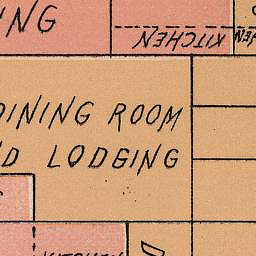 NG
KITCHEN
EN
DINING ROOM
D LODGING
KITCHEN
D